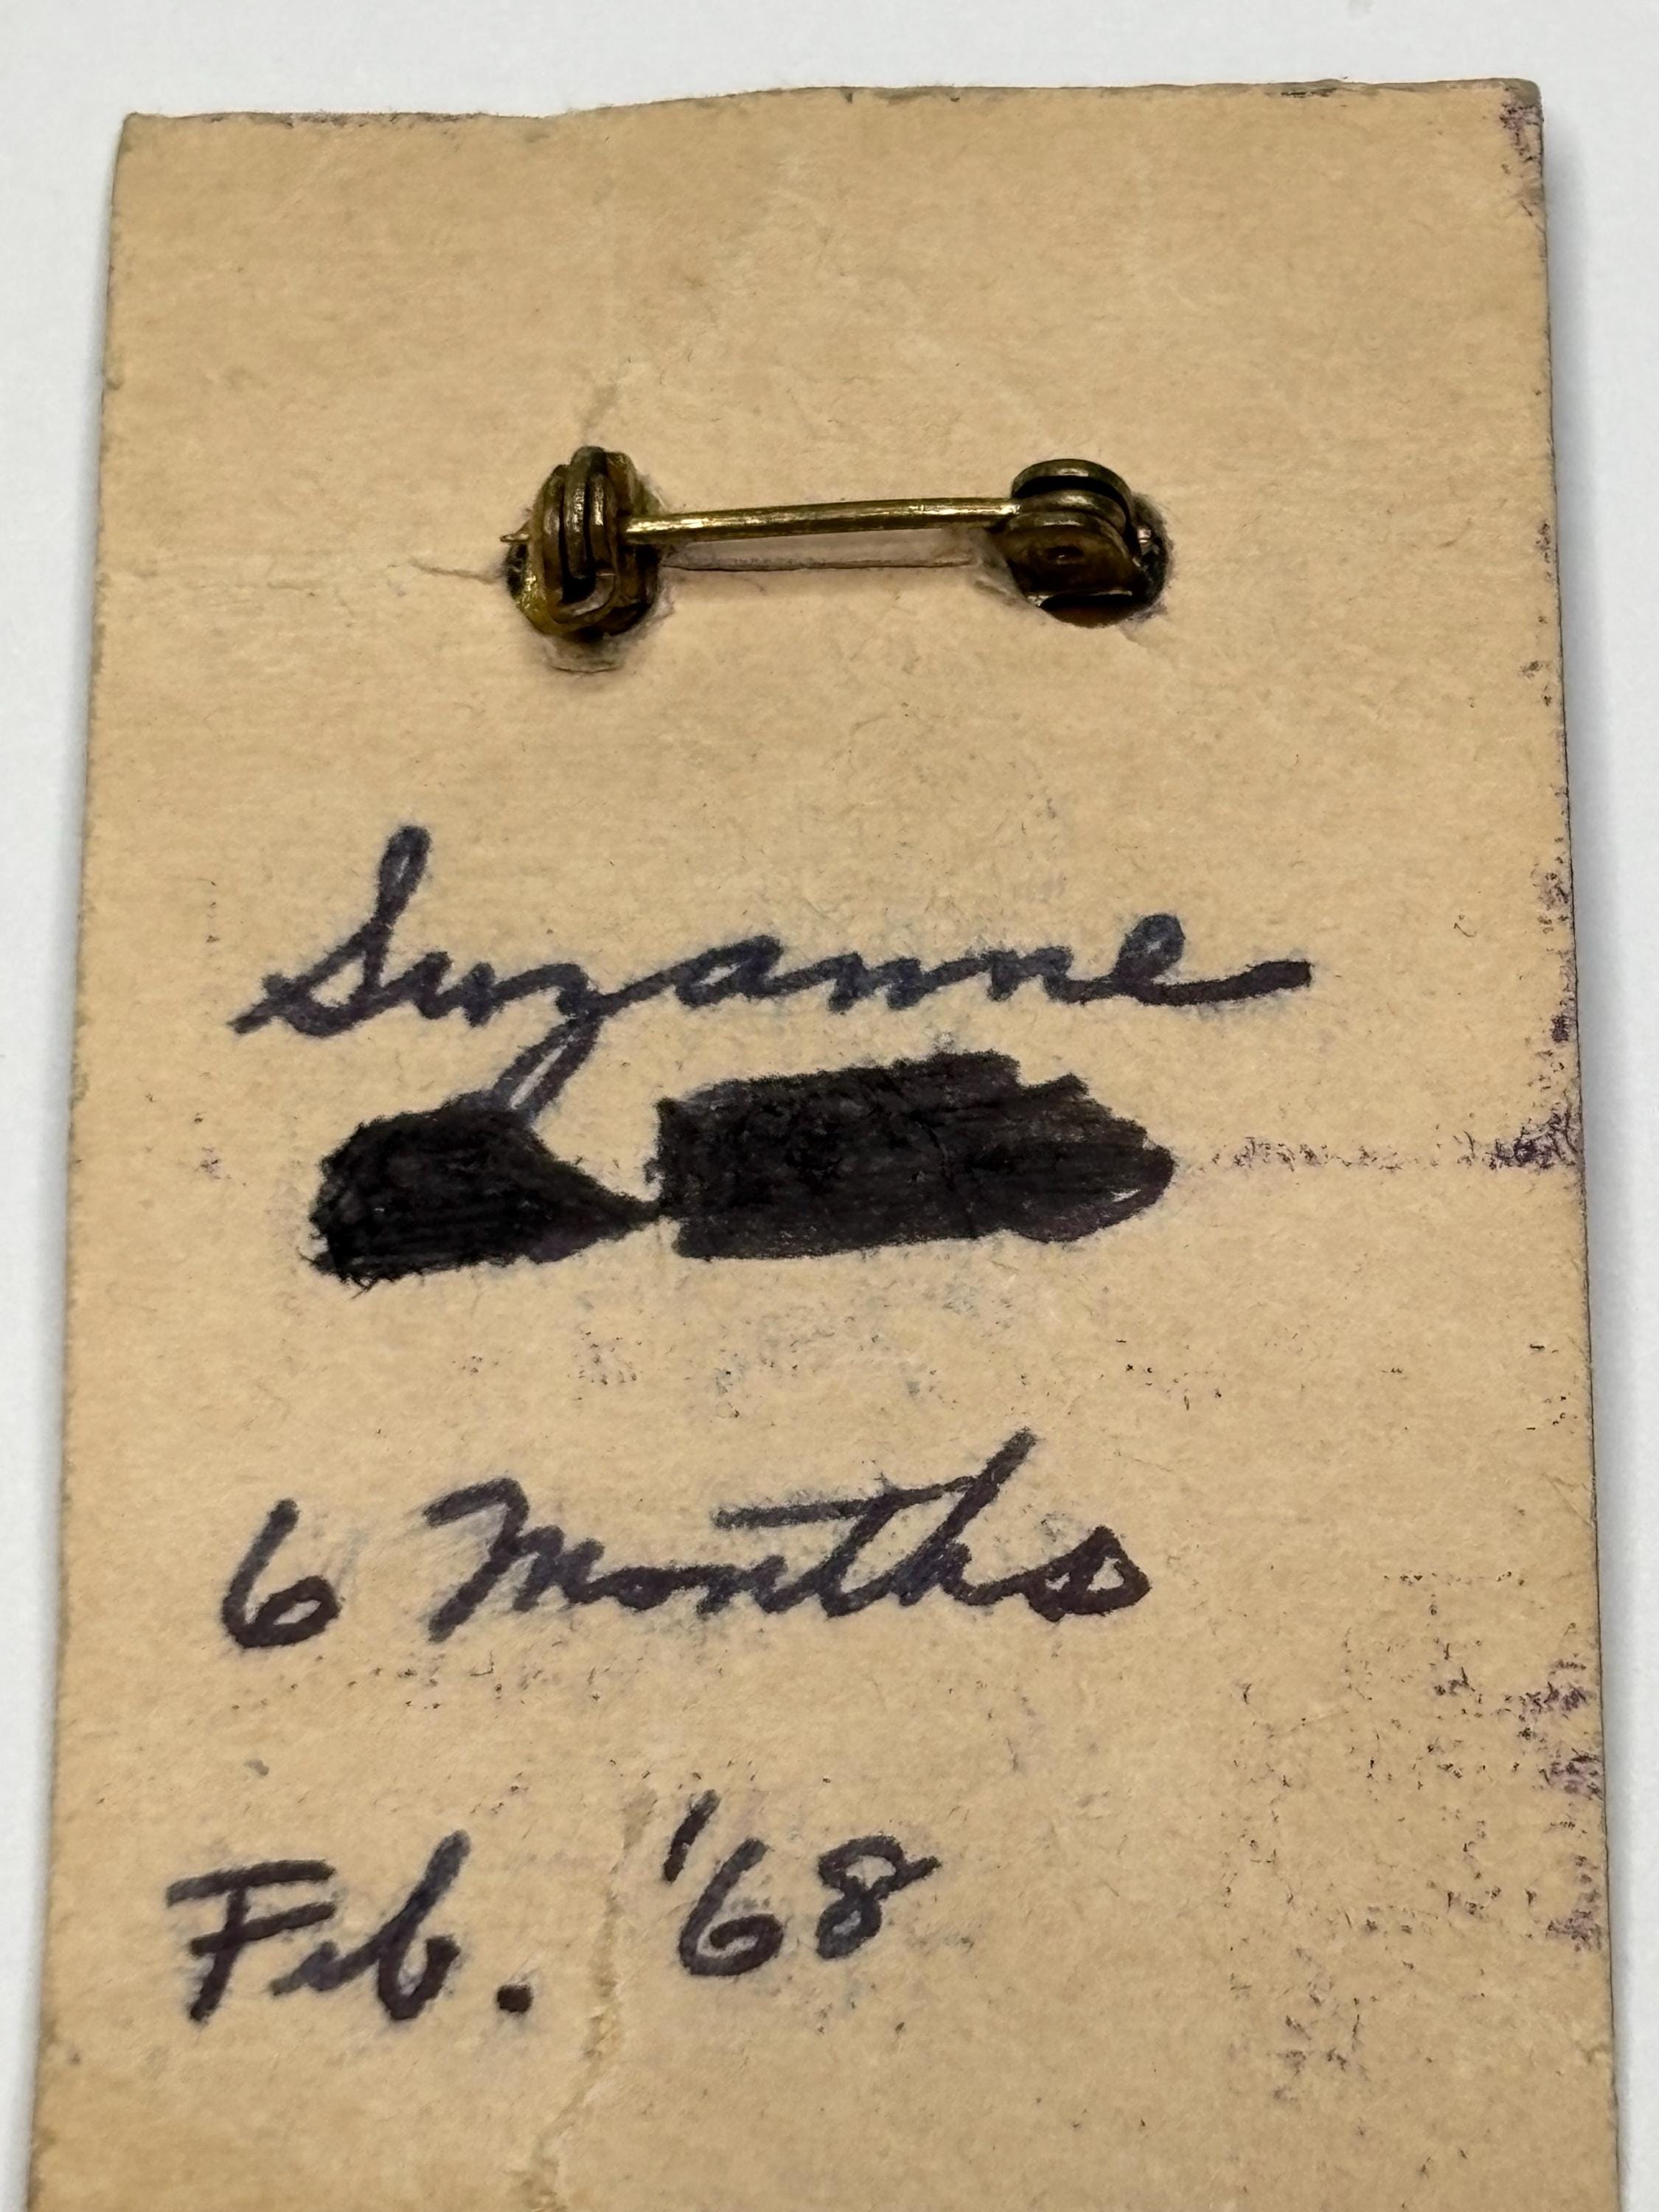 Suzanne
6 Months
Feb. '68